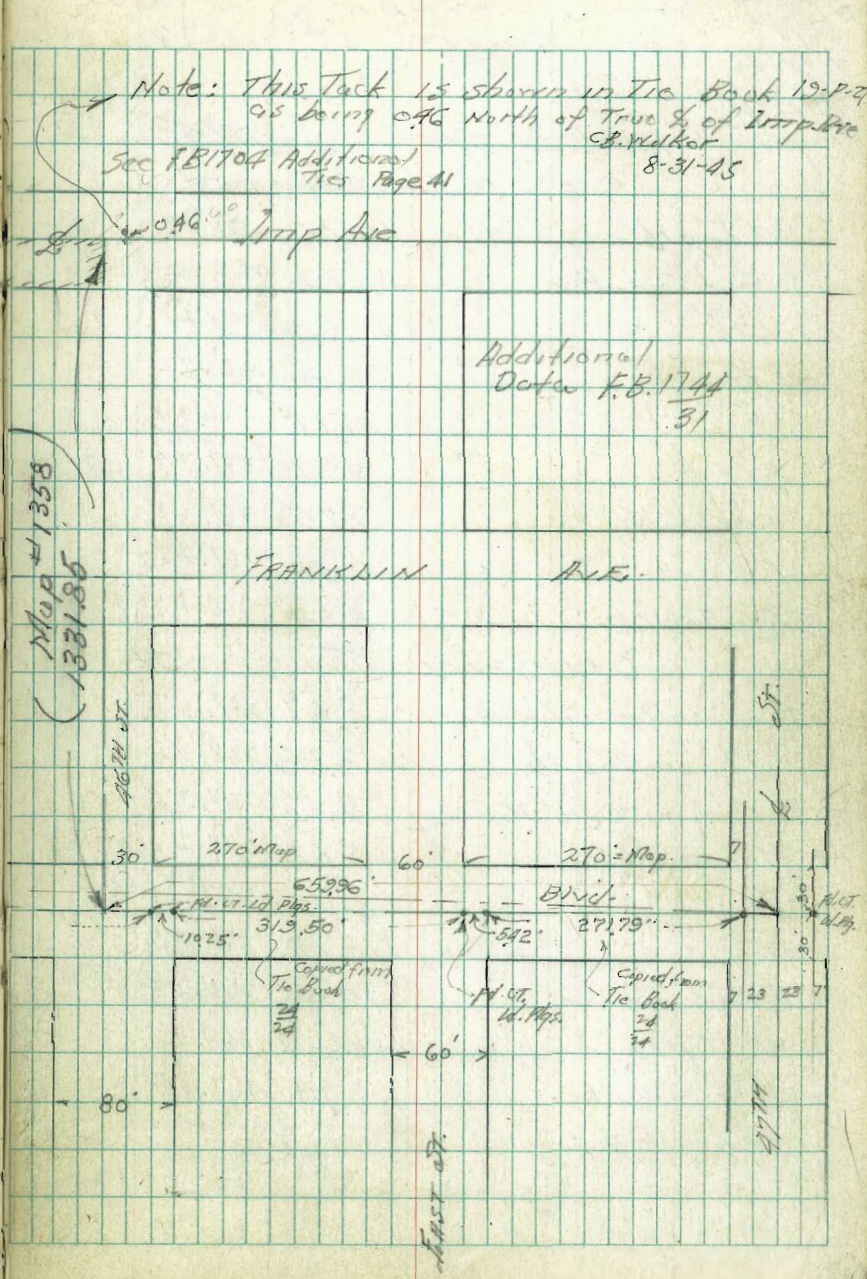 Note: This Tack is shown in Tie Book 19-P-2
as being 0.46 North of True ℄ of Imp. Ave
C.B. Walker
8-31-45
See FB1704 Additional
Ties Page 41
℄
0.46
Imp Ave
Additional
Data F.B. 1744
31
Map #1358
1331.86
FRANKLIN AVE.
46TH ST.
St.
℄
30'
270' Map
60'
270' = Map.
7
659.96'
Blvd.
Fd. CT. Ld Plgs.
10.25'
319.50'
5.42'
271.79'
30'
30'
Fd. CT.
Ld. Plg.
Copied from
Tie Book
24
24
Fd. CT.
Ld. Plgs.
Copied from
Tie Book
24
24
7 23 23 7
60'
80'
47TH
EAST ST.